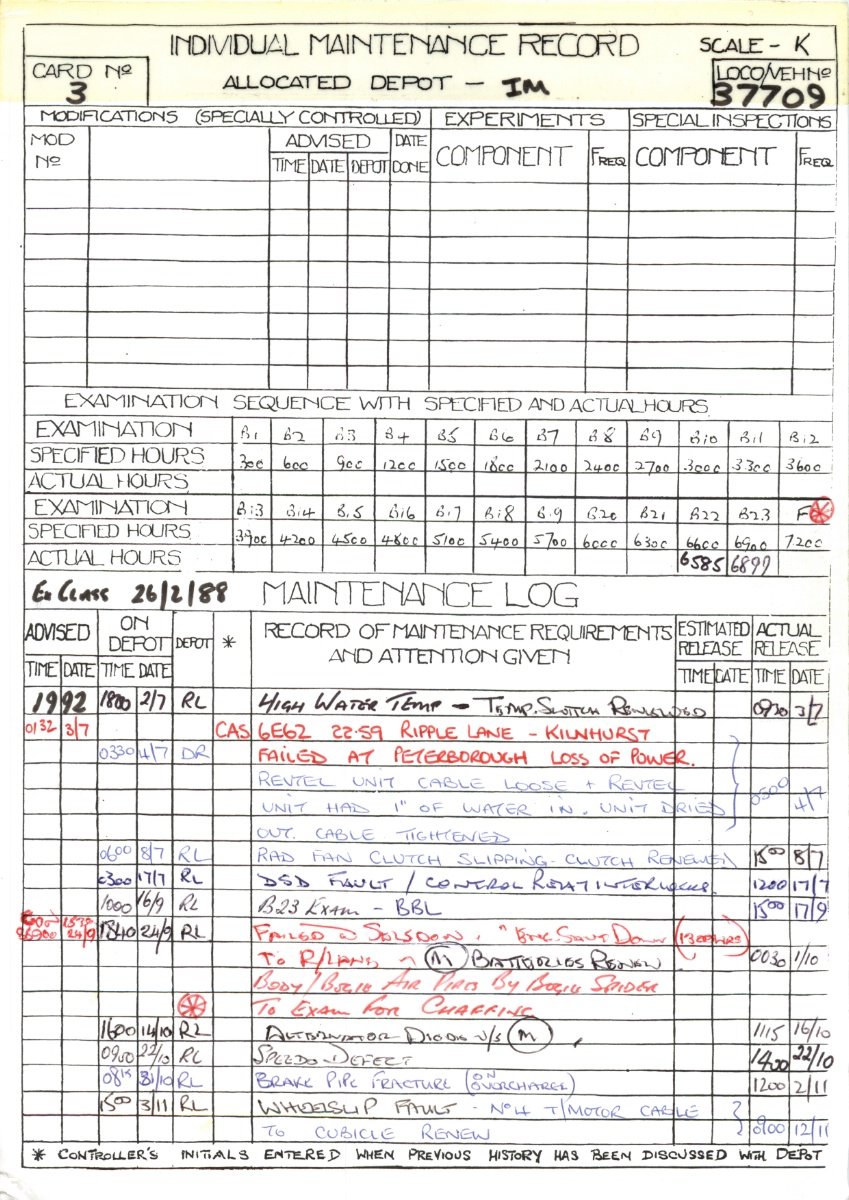 INDIVIDUAL MAINTENANCE RECORD SCALE - K
CARD Nº 3 ALLOCATED DEPOT - IM LOCO/VEH Nº 37709
MODIFICATIONS (SPECIALLY CONTROLLED) EXPERIMENTS SPECIAL INSPECTIONS
MOD Nº ADVISED DATE DONE COMPONENT FREQ COMPONENT FREQ
TIME DATE DEPOT
EXAMINATION SEQUENCE WITH SPECIFIED AND ACTUAL HOURS
EXAMINATION B1 B2 B3 B4 B5 B6 B7 B8 B9 B10 B11 B12
SPECIFIED HOURS 300 600 900 1200 1500 1800 2100 2400 2700 3000 3300 3600
ACTUAL HOURS
EXAMINATION B13 B14 B15 B16 B17 B18 B19 B20 B21 B22 B23 F
SPECIFIED HOURS 3900 4200 4500 4800 5100 5400 5700 6000 6300 6600 6900 7200
ACTUAL HOURS 6585 6899
Ex CLASS 26/2/88 MAINTENANCE LOG
ADVISED ON DEPOT DEPOT * RECORD OF MAINTENANCE REQUIREMENTS AND ATTENTION GIVEN ESTIMATED RELEASE ACTUAL RELEASE
TIME DATE TIME DATE TIME DATE TIME DATE
1992 1800 2/7 RL HIGH WATER TEMP - TEMP. SWITCH RENEWED 0930 3/7
0132 3/7 CAS 6E62 22.59 RIPPLE LANE - KILNHURST
0330 4/7 DR FAILED AT PETERBOROUGH LOSS OF POWER.
REVTEL UNIT CABLE LOOSE + REVTEL 0500
UNIT HAD 1" OF WATER IN. UNIT DRIED 4/7
OUT. CABLE TIGHTENED
0600 8/7 RL RAD FAN CLUTCH SLIPPING - CLUTCH RENEWED 1500 8/7
0300 17/7 RL DSD FAULT / CONTROL RELAY INTERLOCKS. 1200 17/7
1000 16/9 RL B23 EXAM - BBL 1500 17/9
24/9 1840 24/9 RL FAILED @ SELSDON, SHUT DOWN (1300HRS)
TO R/LANE (M) BATTERIES RENEW 0030 1/10
BODY/BOGIE AIR PIPES BY BOGIE SPIDER
TO EXAM FOR CHAFFING
1600 14/10 RL ALTERNATOR DIODE U/S (M) 1115 16/10
0900 22/10 RL SPEEDO DEFECT 1400 22/10
0815 31/10 RL BRAKE PIPE FRACTURE (ON OVERCHARGE) 1200 2/11
1500 3/11 RL WHEELSLIP FAULT - No 4 T/MOTOR CABLE
TO CUBICLE RENEW 0900 12/11
* CONTROLLER'S INITIALS ENTERED WHEN PREVIOUS HISTORY HAS BEEN DISCUSSED WITH DEPOT